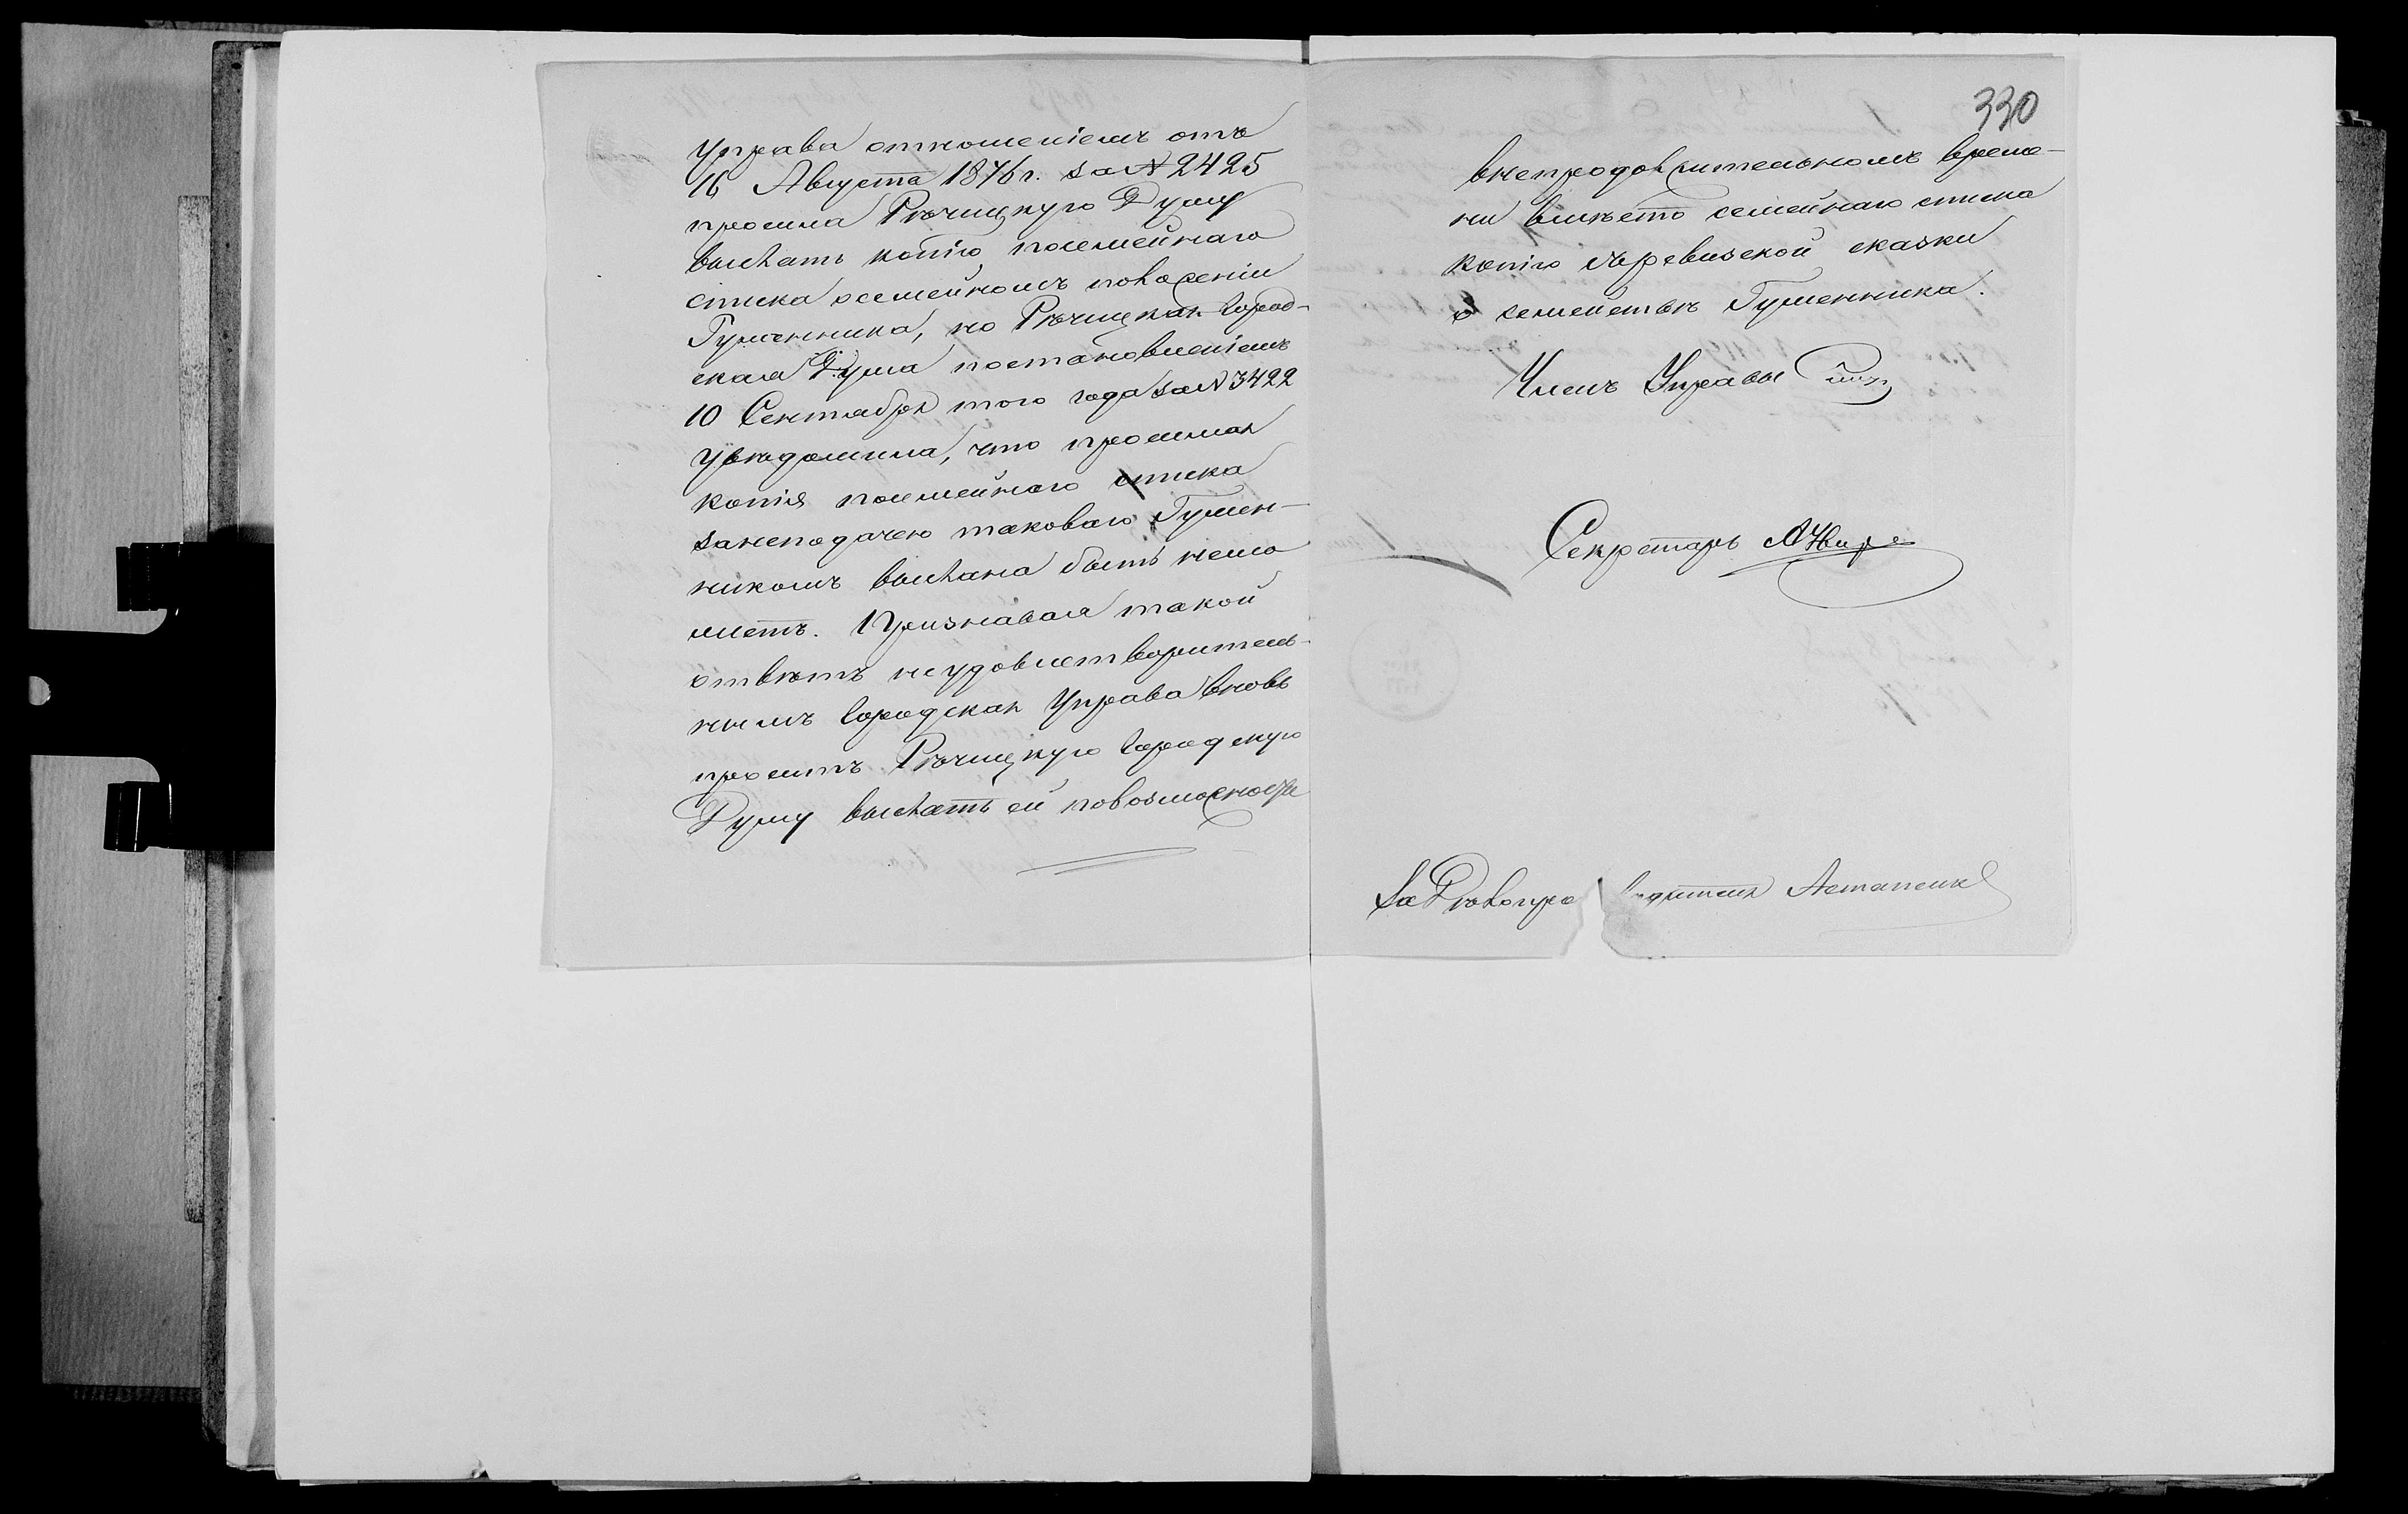 Управа отношеніемъ отъ
16 Августа 1876 г. за № 2425
просила Рѣчицкую Думу
выслать копію посемейнаго
списка осемейномъ положеніи
Гуменника, но Рѣчицкая Город-
ская Дума постановленіемъ
10 Сентября того года за № 3422
увѣдомила, что просимая
копія посемейнаго списка
занеподачею таковаго Гумен-
никомъ выслана быть немо
жетъ. Признавая такой
отвѣтъ неудовлетворитель-
нымъ Городская Управа вновь
проситъ Рѣчицкую Городскую
Думу выслать ей повозможности
330
внепродолжительномъ време-
ни вмѣсто семейнаго списка
копію съревизской сказки
о семействѣ Гуменника.
Членъ Управы
Секретарь
За Дѣлопро водителя